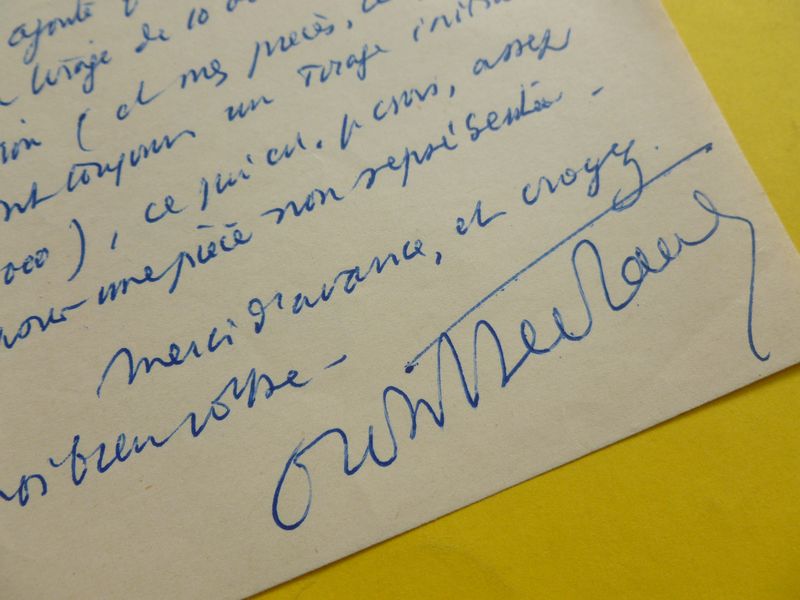 ajouté
tirage de 10
(et mes pièces,
toujours un tirage
000), ce qui est, je crois, assez
pour une pièce non représentée.
Merci d'avance, et croyez
moi bien vôtre —